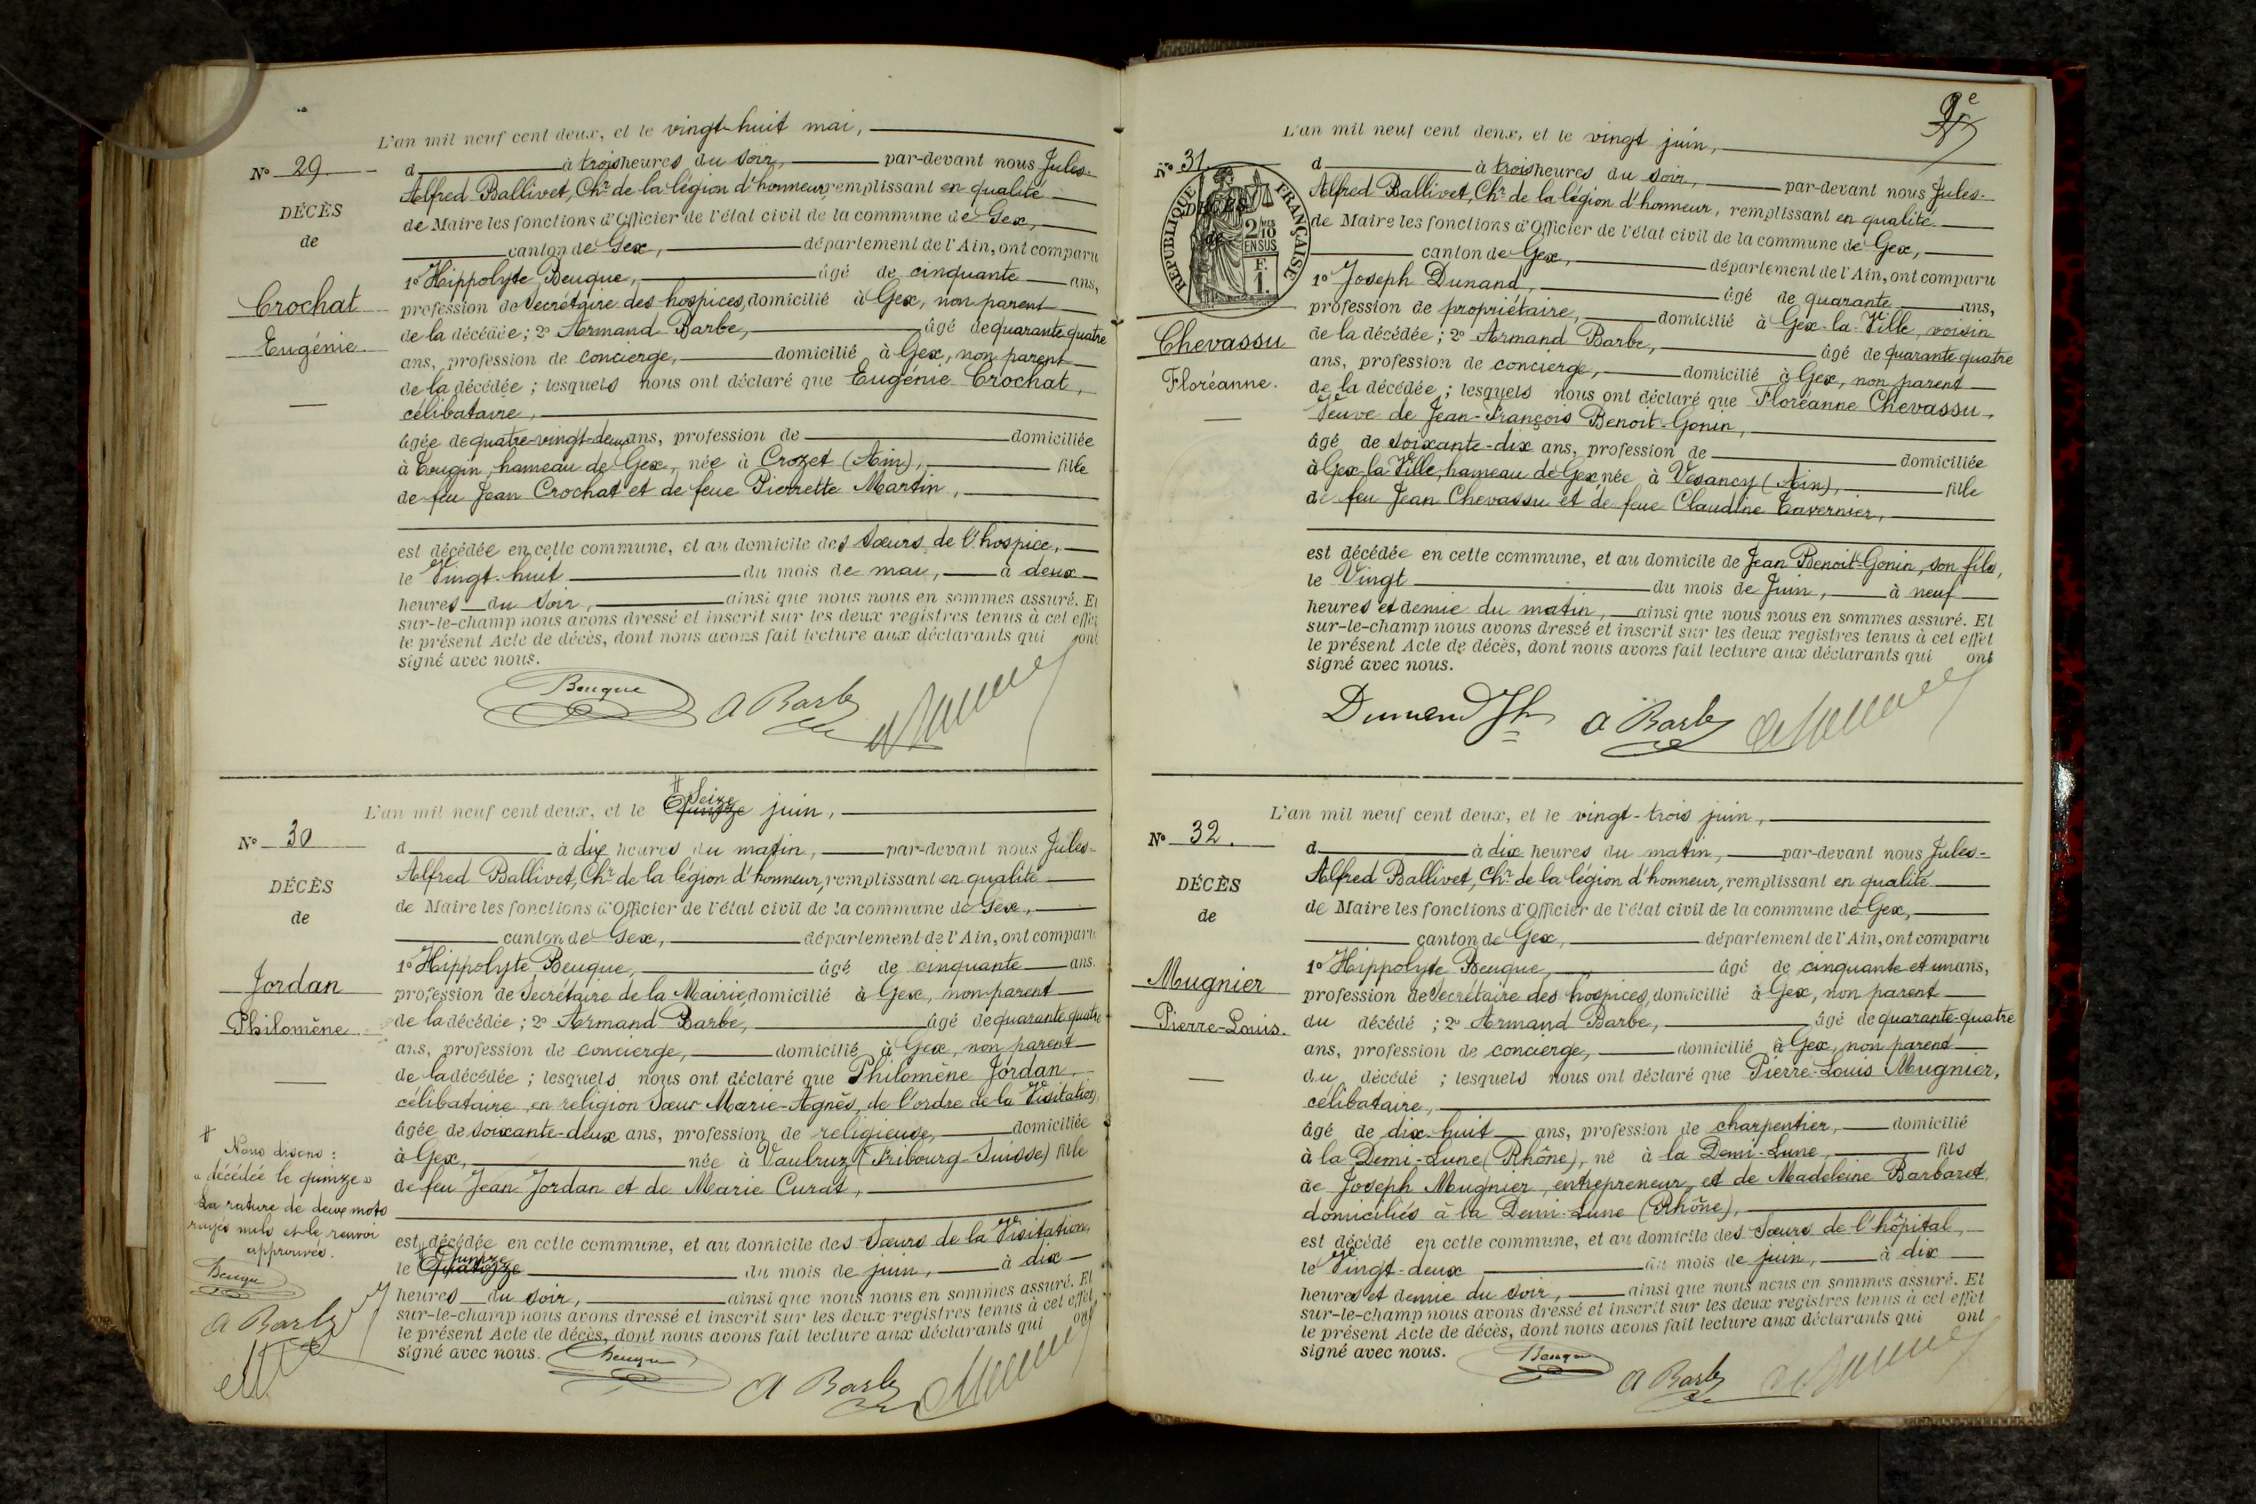 L'an mil neuf cent deux, et le vingt-huit mai,
N° 29
d à trois heures du soir, par-devant nous Jules-
Alfred Ballivet, Chr de la légion d'honneur, remplissant en qualité
DÉCÈS
de Maire les fonctions d'Officier de l'état civil de la commune de Gex,
de
canton de Gex, département de l'Ain, ont comparu
1° Hippolyte Beuque, âgé de cinquante ans,
Crochat
profession de Secrétaire des hospices, domicilié à Gex, non parent
de la décédée ; 2° Armand Barbe, âgé de quarante quatre
Eugénie
ans, profession de concierge, domicilié à Gex, non parent
de la décédée ; lesquels nous ont déclaré que Eugénie Crochat,
célibataire,
âgée de quatre-vingt-deux ans, profession de domiciliée
à Tougin, hameau de Gex, née à Crozet (Ain), fille
de feu Jean Crochat et de feue Pierrette Martin,
est décédée en cette commune, et au domicile des Sœurs de l'hospice,
le Vingt-huit du mois de mai, à deux
heures du soir, ainsi que nous nous en sommes assuré. Et
sur-le-champ nous avons dressé et inscrit sur les deux registres tenus à cet effet
le présent Acte de décès, dont nous avons fait lecture aux déclarants qui ont
signé avec nous.
Beuque A Barbe
L'an mil neuf cent deux, et le # Seize Quinze juin,
N° 30
d à dix heures du matin, par-devant nous Jules-
Alfred Ballivet, Chr de la légion d'honneur, remplissant en qualité
DÉCÈS
de Maire les fonctions d'Officier de l'état civil de la commune de Gex,
de
canton de Gex, département de l'Ain, ont comparu
1° Hippolyte Beuque, âgé de cinquante ans.
Jordan
profession de Secrétaire de la Mairie, domicilié à Gex, non parent
Philomène
de la décédée ; 2° Armand Barbe, âgé de quarante quatre
ans, profession de concierge, domicilié à Gex, non parent
de la décédée ; lesquels nous ont déclaré que Philomène Jordan
célibataire, en religion Sœur Marie-Agnès, de l'ordre de la Visitation,
âgée de soixante-deux ans, profession de religieuse, domiciliée
à Gex, née à Vaulruz (Fribourg-Suisse) fille
de feu Jean Jordan et de Marie Curat,
est décédée en cette commune, et au domicile des Sœurs de la Visitation,
le # Quinze Quatorze du mois de juin, à dix
heures du soir, ainsi que nous nous en sommes assuré. Et
sur-le-champ nous avons dressé et inscrit sur les deux registres tenus à cet effet
le présent Acte de décès, dont nous avons fait lecture aux déclarants qui ont
signé avec nous.
Beuque A Barbe
# Nous disons :
" décédée le quinze "
La rature de deux mots
rayés nuls et le renvoi
approuvés.
Beuque
A Barbe
2e
L'an mil neuf cent deux, et le vingt juin,
N° 31
d à trois heures du soir, par-devant nous Jules-
Alfred Ballivet, Chr de la légion d'honneur, remplissant en qualité
DÉCÈS
de
RÉPUBLIQUE FRANÇAISE
2/10 EN SUS
F. 1.
de Maire les fonctions d'Officier de l'état civil de la commune de Gex,
canton de Gex, département de l'Ain, ont comparu
1° Joseph Dunand, âgé de quarante ans,
profession de propriétaire, domicilié à Gex-la-Ville, voisin
Chevassu
de la décédée ; 2° Armand Barbe, âgé de quarante quatre
Floréanne.
ans, profession de concierge, domicilié à Gex, non parent
de la décédée ; lesquels nous ont déclaré que Floréanne Chevassu,
Veuve de Jean-François Benoit-Gonin,
âgé de soixante-dix ans, profession de domiciliée
à Gex-la-Ville, hameau de Gex, née à Vesancy (Ain), fille
de feu Jean Chevassu et de feue Claudine Tavernier,
est décédée en cette commune, et au domicile de Jean Benoit-Gonin, son fils,
le Vingt du mois de Juin, à neuf
heures et demie du matin, ainsi que nous nous en sommes assuré. Et
sur-le-champ nous avons dressé et inscrit sur les deux registres tenus à cet effet
le présent Acte de décès, dont nous avons fait lecture aux déclarants qui ont
signé avec nous.
Dunand Jh A Barbe
L'an mil neuf cent deux, et le vingt-trois juin,
N° 32.
d à dix heures du matin, par-devant nous Jules-
Alfred Ballivet, Chr de la légion d'honneur, remplissant en qualité
DÉCÈS
de Maire les fonctions d'Officier de l'état civil de la commune de Gex,
de
canton de Gex, département de l'Ain, ont comparu
1° Hippolyte Beuque, âgé de cinquante et un ans,
Mugnier
profession de Secrétaire des hospices, domicilié à Gex, non parent
Pierre-Louis.
du décédé ; 2° Armand Barbe, âgé de quarante-quatre
ans, profession de concierge, domicilié à Gex, non parent
du décédé ; lesquels nous ont déclaré que Pierre-Louis Mugnier,
célibataire,
âgé de dix-huit ans, profession de charpentier, domicilié
à la Demi-Lune (Rhône), né à la Demi-Lune, fils
de Joseph Mugnier, entrepreneur, et de Madeleine Barbaret,
domiciliés à la Demi-Lune (Rhône),
est décédé en cette commune, et au domicile des Sœurs de l'hôpital,
le Vingt-deux du mois de juin, à dix
heures et demie du soir, ainsi que nous nous en sommes assuré. Et
sur-le-champ nous avons dressé et inscrit sur les deux registres tenus à cet effet
le présent Acte de décès, dont nous avons fait lecture aux déclarants qui ont
signé avec nous.
Beuque A Barbe